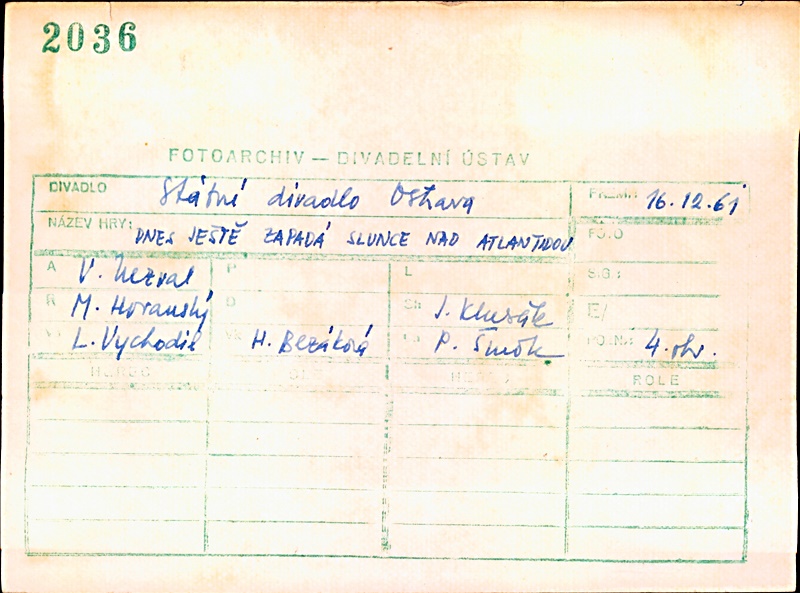 2036
FOTOARCHIV — DIVADELNÍ ÚSTAV
DIVADLO Státní divadlo Ostrava PREM.: 16.12.61
NÁZEV HRY: DNES JEŠTĚ ZAPADÁ SLUNCE NAD ATLANTIDOU FOTO
A V. Nezval P L SIG.:
R M. Horanský D Sb J. Klusák
L. Vychodil H. Bezáková P. Šmok 4. obr.
HEREC ROLE